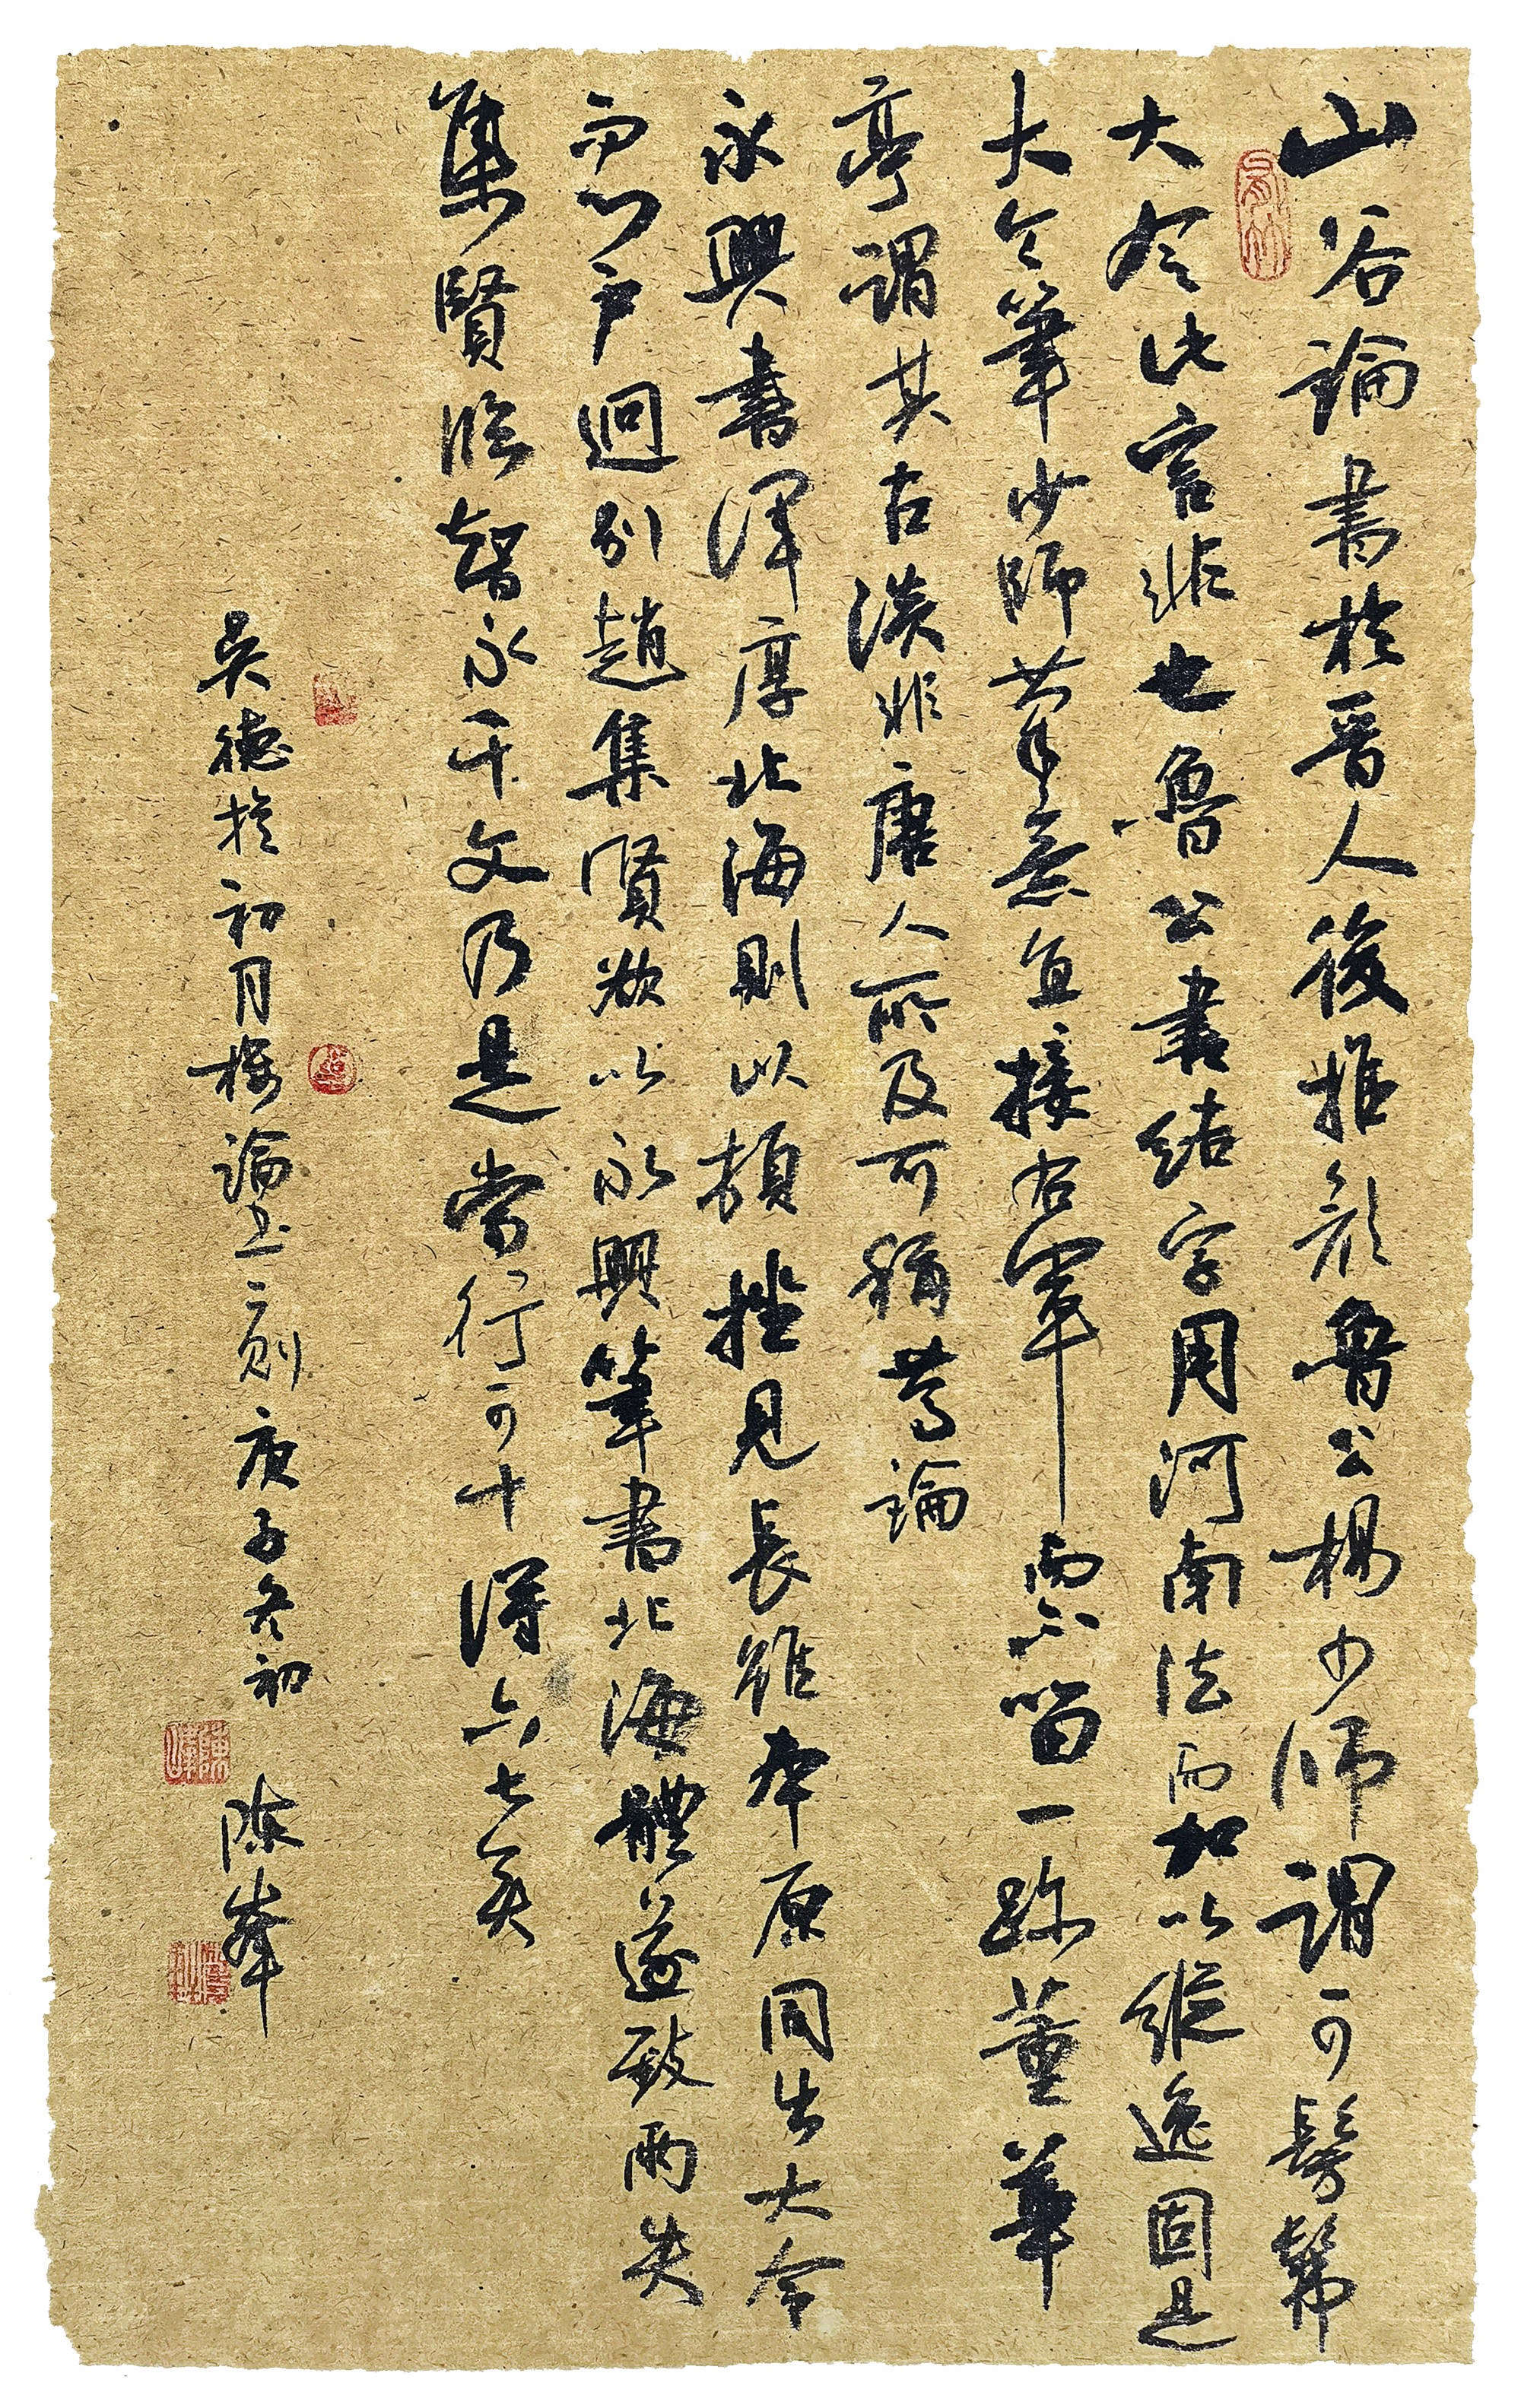 山谷論書於晉人後推顏魯公楊少師謂可髣髴
大令此言非也魯公書結字用河南法而加以縱逸固是
大令筆少師筆意直接右軍而不留一跡董華
亭謂其古淡非唐人所及可稱篤論
永興書渾厚北海則以頓挫見長雖本原同出大令
而門戶迥別趙集賢欲以永興筆書北海體遂致兩失
集賢臨智永千文乃是當行可十得六七矣
吳德旋初月樓論書二則庚子冬初 陳峰